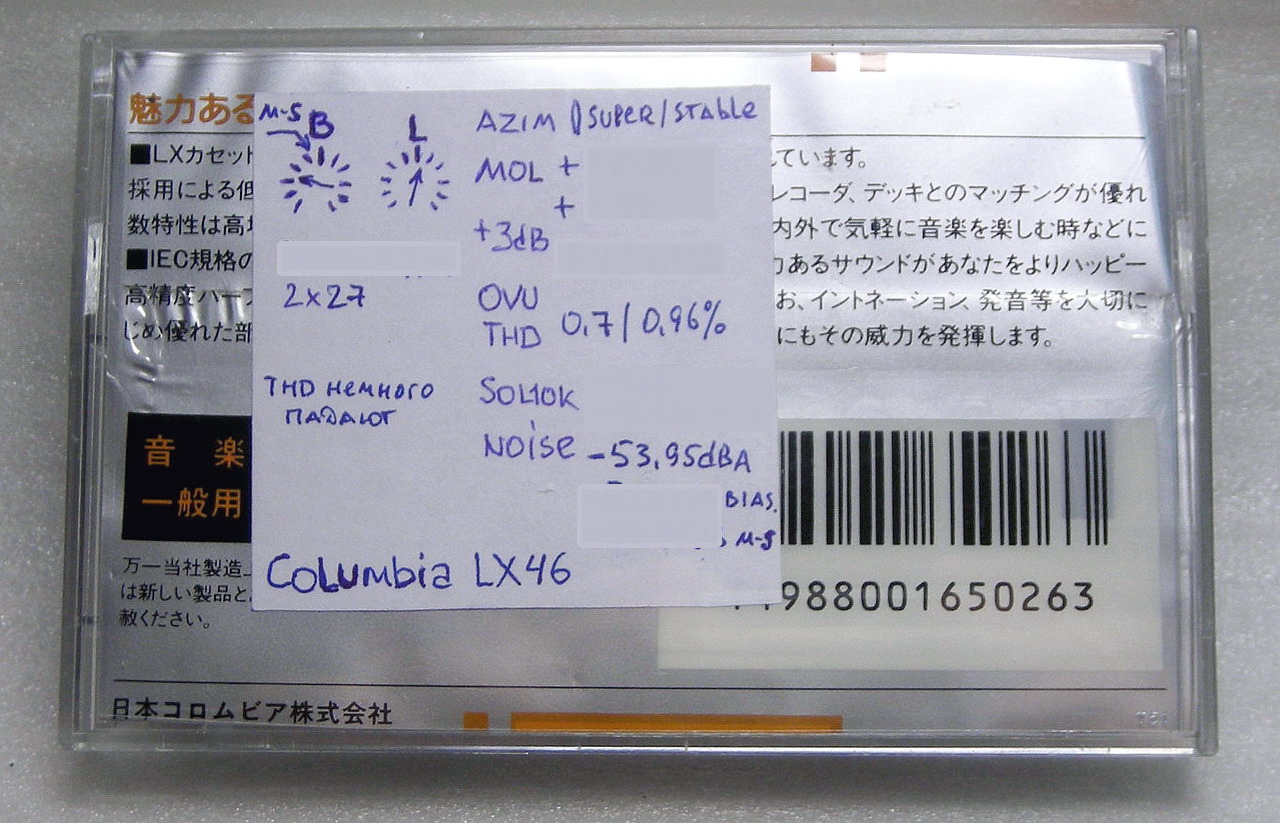 魅力ある
■LXカセット
採用による低
数特性は高
■IEC規格の
高精度ハーフ
じめ優れた部
ています。
レコーダ、デッキとのマッチングが優れ
内外で気軽に音楽を楽しむ時などに
力あるサウンドがあなたをよりハッピー
お、イントネーション、発音等を大切に
にもその威力を発揮します。
M-S
B L
2x27
THD немного
падают
AZIM SUPER/STABLE
MOL +
+
+3dB
OVU
THD 0,7/0,96%
SOL10K
NOISE -53,95dBA
BIAS,
M-S
COLUMbia LX46
音楽
一般用
万一当社製造上
は新しい製品と
赦ください。
988001650263
日本コロムビア株式会社